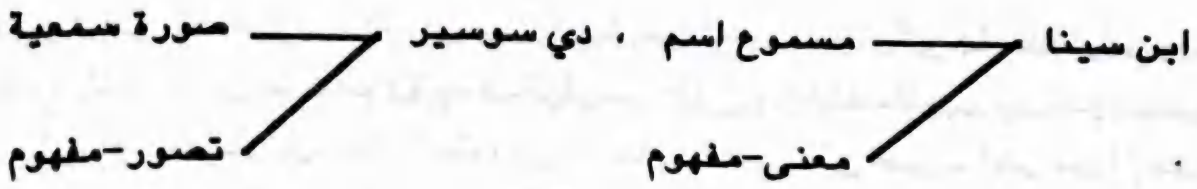 ابن سينا مسموع اسم ، دي سوسير صورة سمعية
معنى-مفهوم تصور-مفهوم